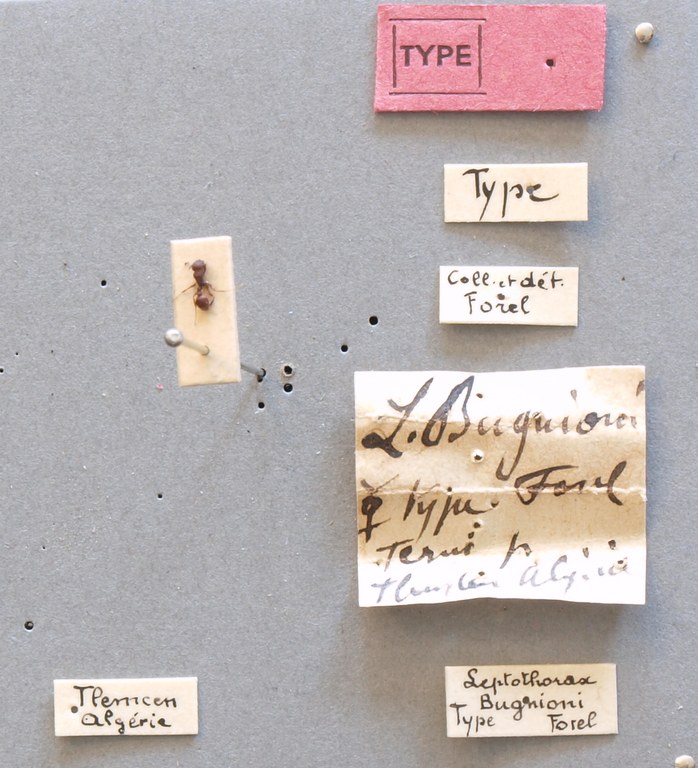 TYPE
Type
Coll. et dét.
Forel
L. Bugnioni
☿ type. Forel
Terni p.
Tlemcen Algérie
Tlemcen
Algérie
Leptothorax
Bugnioni
Type Forel